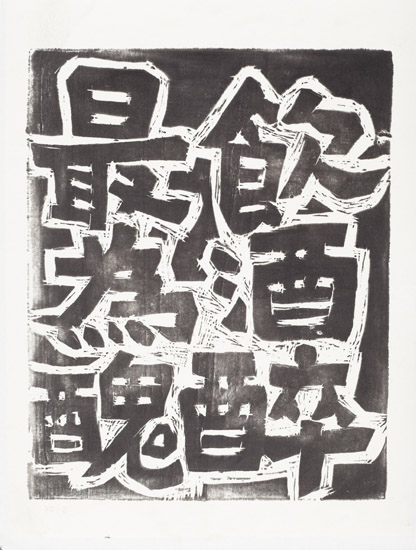 飲酒醉
最為醜